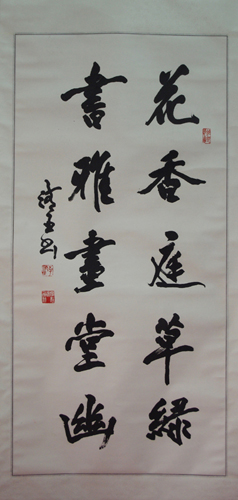 花香庭草緑
書雅畫堂幽